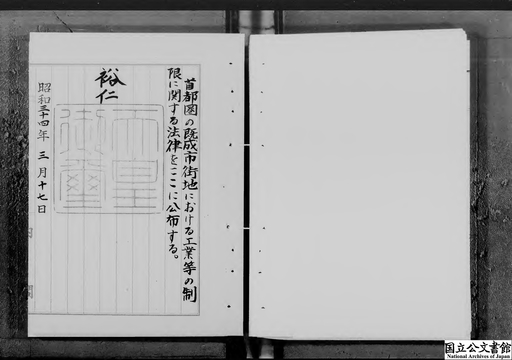 首都圏の既成市街地における工業等の制
限に関する法律をここに公布する。
裕仁
天皇御璽
昭和三十四年三月十七日
国立公文書館
National Archives of Japan